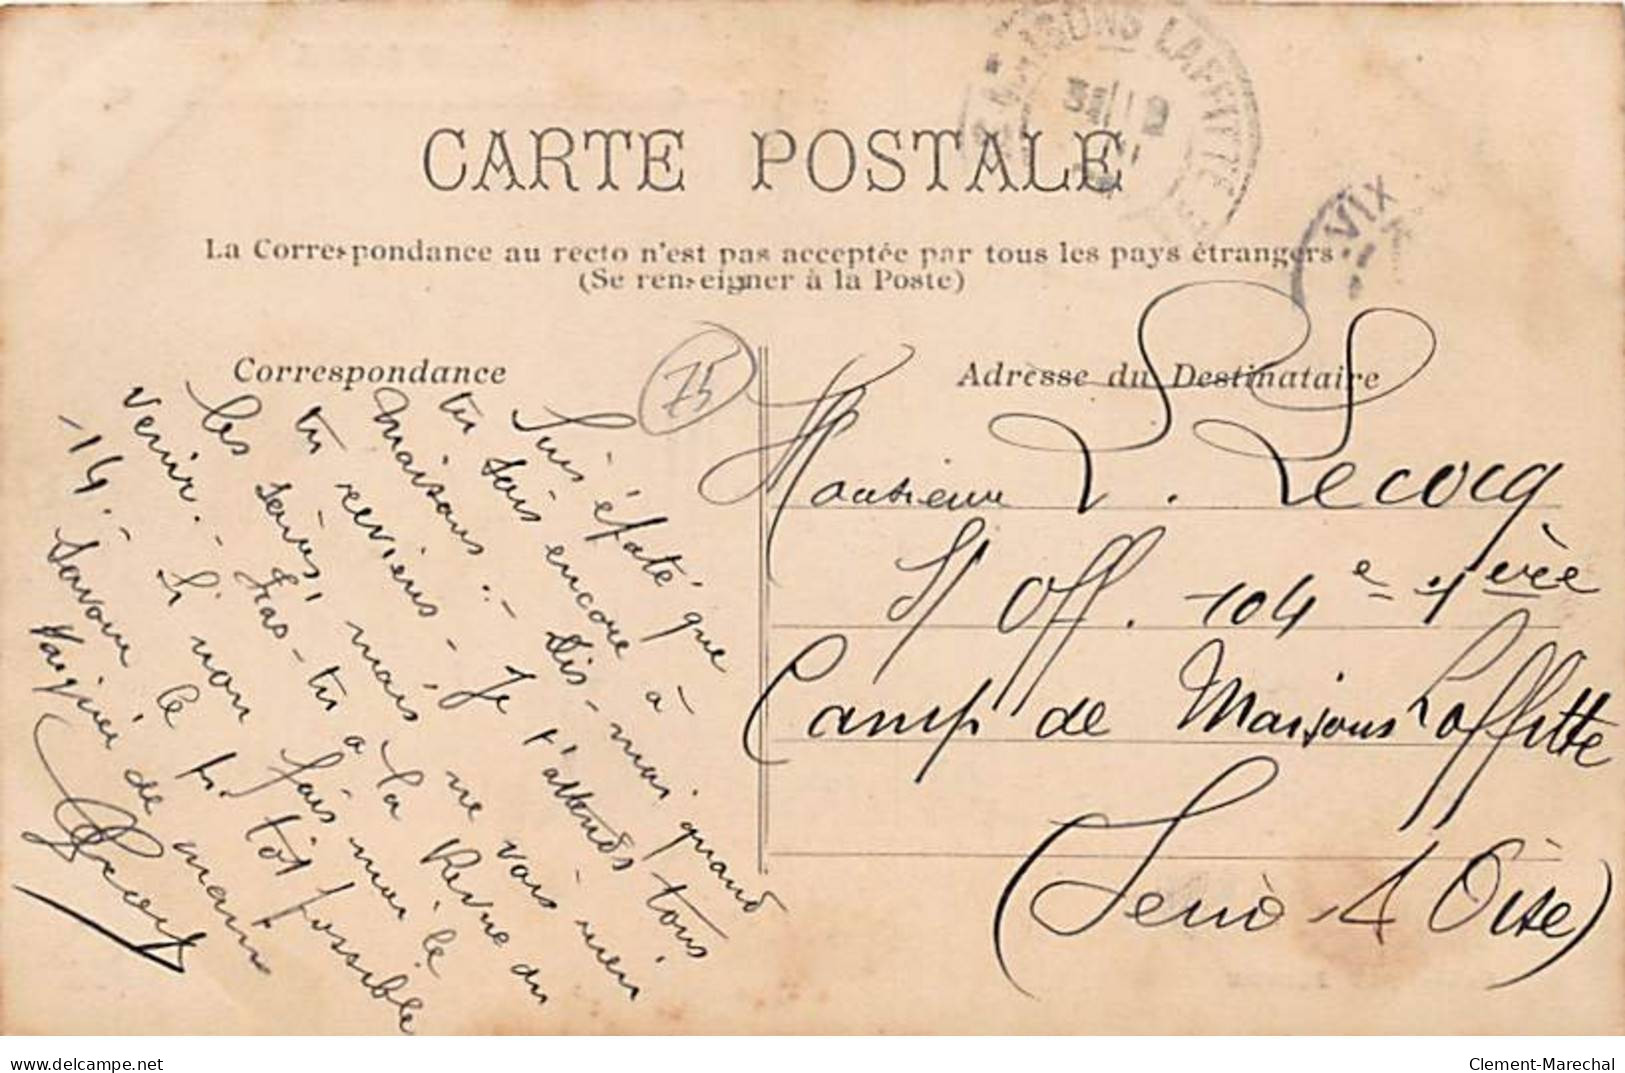 CARTE POSTALE
La Correspondance au recto n'est pas acceptée par tous les pays étrangers
(Se renseigner à la Poste)
Correspondance
Adresse du Destinataire
MAISONS LAFFITTE
VIX
75
Suis épaté que
tu sois encore à
Maisons.- Dis-moi quand
tu reviens - Je t'attends tous
les soirs mais ne vois rien
venir.- Iras-tu à la Revue du
-14.- Si non fais moi le
savoir le + tôt possible
de main
Monsieur L. Lecocq
S/Off. 104e 1ère
Camp de Maisons Laffitte
(Seine & Oise)
delcampe.net
Clement-Marechal